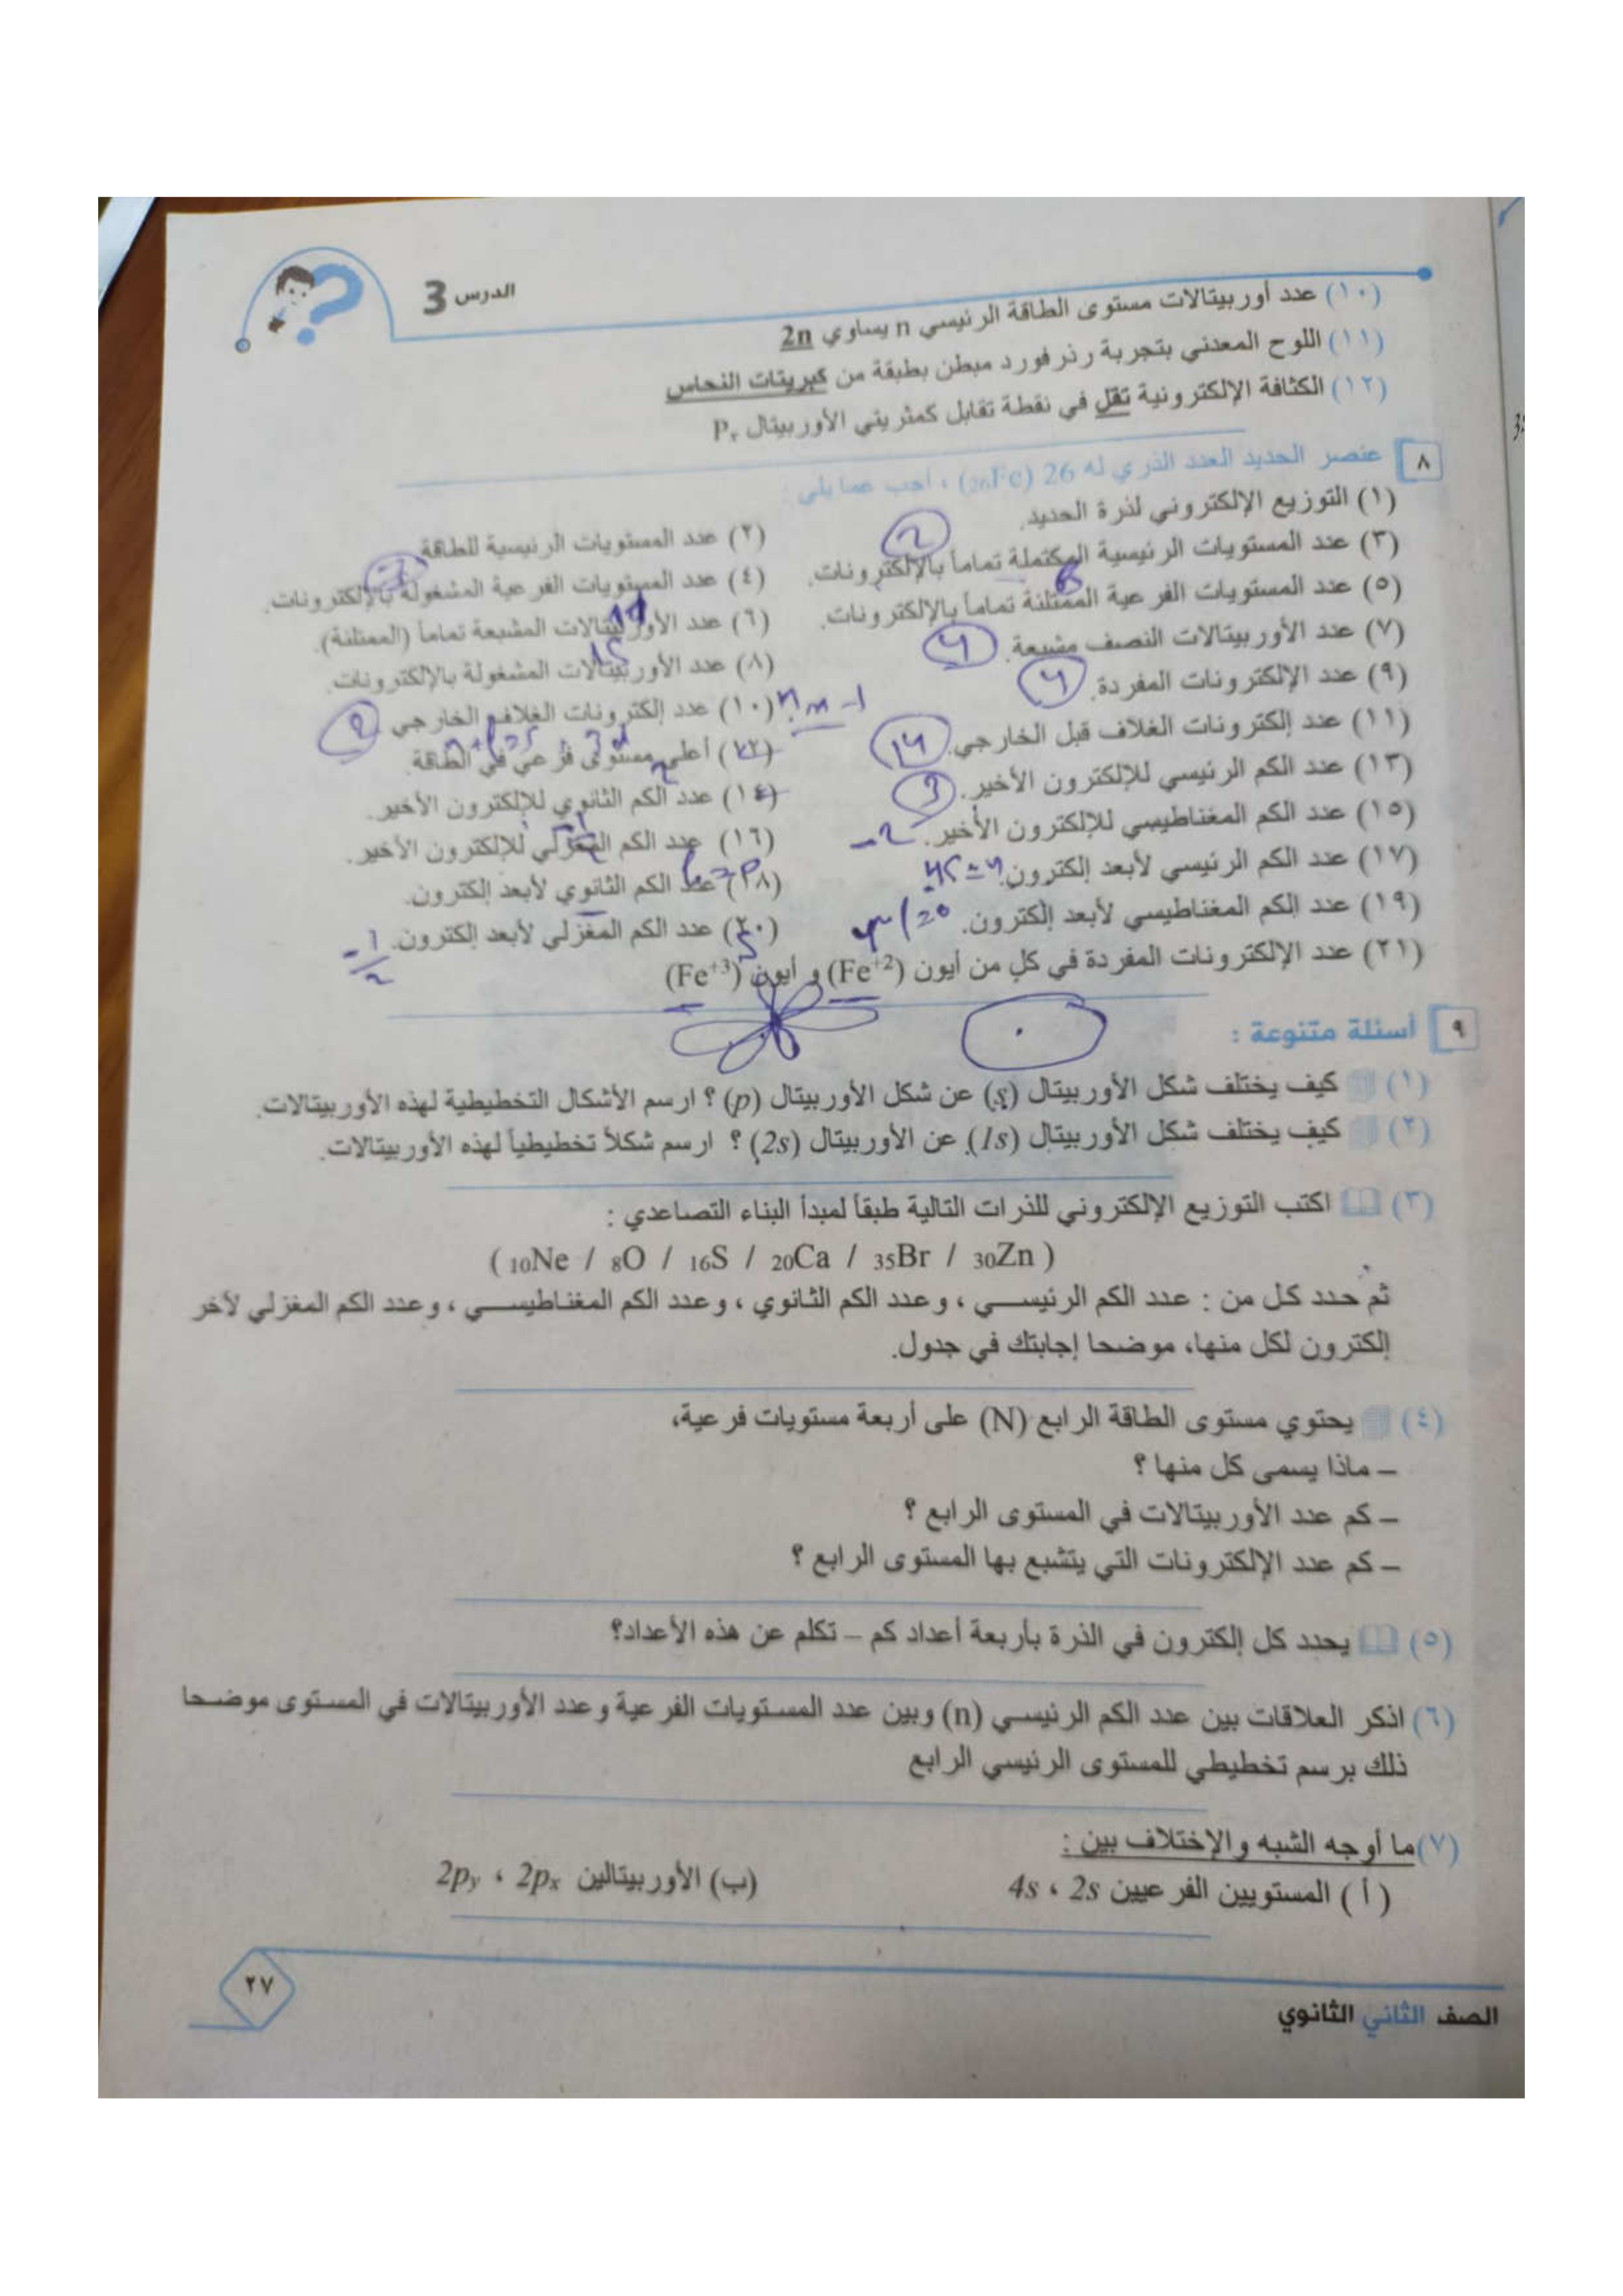 الدرس 3
(١٠) عدد أوربيتالات مستوى الطاقة الرئيسي n يساوي 2n
(١١) اللوح المعدني بتجربة رذرفورد مبطن بطبقة من كبريتات النحاس
(١٢) الكثافة الإلكترونية تقل في نقطة تقابل كمثريتي الأوربيتال
٨ عنصر الحديد العدد الذري له 26 (26Fe) ، أجب عما يلي :
(١) التوزيع الإلكتروني لذرة الحديد.
(٢) عدد المستويات الرئيسية للطاقة
(٣) عدد المستويات الرئيسية المكتملة تماماً بالإلكترونات.
(٤) عدد المستويات الفرعية المشغولة بالإلكترونات.
(٥) عدد المستويات الفرعية الممتلئة تماماً بالإلكترونات.
(٦) عدد الأوربيتالات المشبعة تماماً (الممتلئة).
(٧) عدد الأوربيتالات النصف مشبعة. 4
(٨) عدد الأوربيتالات المشغولة بالإلكترونات. 15
(٩) عدد الإلكترونات المفردة. 4
(١٠) عدد إلكترونات الغلاف الخارجي
(١١) عدد إلكترونات الغلاف قبل الخارجي. 14
(١٢) أعلى مستوى فرعي في الطاقة
(١٣) عدد الكم الرئيسي للإلكترون الأخير. 3
(١٤) عدد الكم الثانوي للإلكترون الأخير.
(١٥) عدد الكم المغناطيسي للإلكترون الأخير. -2
(١٦) عدد الكم المغزلي للإلكترون الأخير.
(١٧) عدد الكم الرئيسي لأبعد إلكترون. 4s=4
(١٨) عدد الكم الثانوي لأبعد إلكترون.
(١٩) عدد الكم المغناطيسي لأبعد إلكترون.
(٢٠) عدد الكم المغزلي لأبعد إلكترون. -1/2
(٢١) عدد الإلكترونات المفردة في كل من أيون (Fe+2) و أيون (Fe+3)
٩ أسئلة متنوعة :
(١) كيف يختلف شكل الأوربيتال (s) عن شكل الأوربيتال (p) ؟ ارسم الأشكال التخطيطية لهذه الأوربيتالات.
(٢) كيف يختلف شكل الأوربيتال (1s) عن الأوربيتال (2s) ؟ ارسم شكلاً تخطيطياً لهذه الأوربيتالات.
(٣) اكتب التوزيع الإلكتروني للذرات التالية طبقاً لمبدأ البناء التصاعدي :
( 10Ne / 8O / 16S / 20Ca / 35Br / 30Zn )
ثم حدد كل من : عدد الكم الرئيسي ، وعدد الكم الثانوي ، وعدد الكم المغناطيسي ، وعدد الكم المغزلي لآخر
إلكترون لكل منها، موضحا إجابتك في جدول.
(٤) يحتوي مستوى الطاقة الرابع (N) على أربعة مستويات فرعية،
– ماذا يسمى كل منها ؟
– كم عدد الأوربيتالات في المستوى الرابع ؟
– كم عدد الإلكترونات التي يتشبع بها المستوى الرابع ؟
(٥) يحدد كل إلكترون في الذرة بأربعة أعداد كم – تكلم عن هذه الأعداد؟
(٦) اذكر العلاقات بين عدد الكم الرئيسي (n) وبين عدد المستويات الفرعية وعدد الأوربيتالات في المستوى موضحا
ذلك برسم تخطيطي للمستوى الرئيسي الرابع
(٧) ما أوجه الشبه والإختلاف بين :
( أ ) المستويين الفرعيين 2s ، 4s
(ب) الأوربيتالين 2px ، 2py
٢٧
الصف الثاني الثانوي